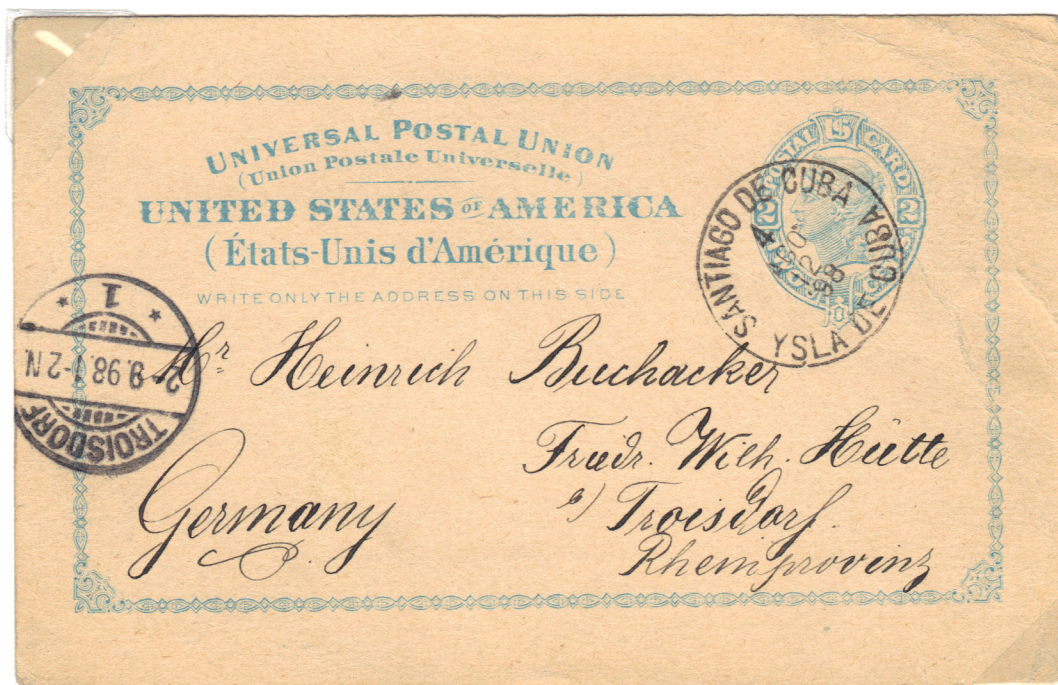 UNIVERSAL POSTAL UNION
(Union Postale Universelle)
UNITED STATES OF AMERICA
(États-Unis d'Amérique)
WRITE ONLY THE ADDRESS ON THIS SIDE
POSTAL U S CARD
2 2
SANTIAGO DE CUBA
YSLA DE CUBA
98
1
2 9 98. 1-2 N.
TROISDORF
Mr Heinrich Buchacker
Friedr. Wilh. Hütte
a/ Troisdorf.
Rheinprovinz
Germany